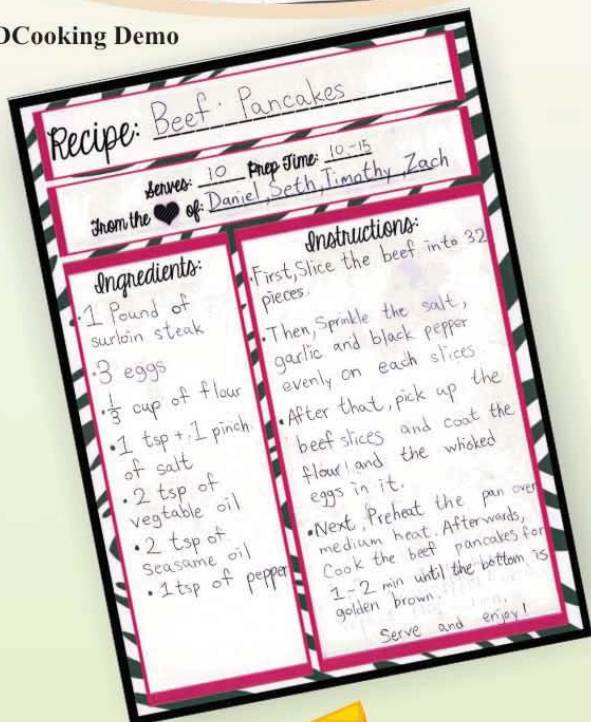 DCooking Demo
Recipe: Beef Pancakes
Serves: 10 Prep Time: 10-15
From the ♥ of: Daniel, Seth, Timothy, Zach
Ingredients:
• 1 Pound of
surloin steak
• 3 eggs
• 1/3 cup of flour
• 1 tsp + 1 pinch
of salt
• 2 tsp of
vegtable oil
• 2 tsp of
seasame oil
• 1 tsp of pepper
Instructions:
• First, Slice the beef into 32
pieces.
• Then, Sprinkle the salt,
garlic and black pepper
evenly on each slices
• After that, pick up the
beef slices and coat the
flour and the whisked
eggs in it.
• Next, Preheat the pan over
medium heat. Afterwards,
Cook the beef pancakes for
1-2 min until the bottom is
golden brown.
Serve and enjoy!